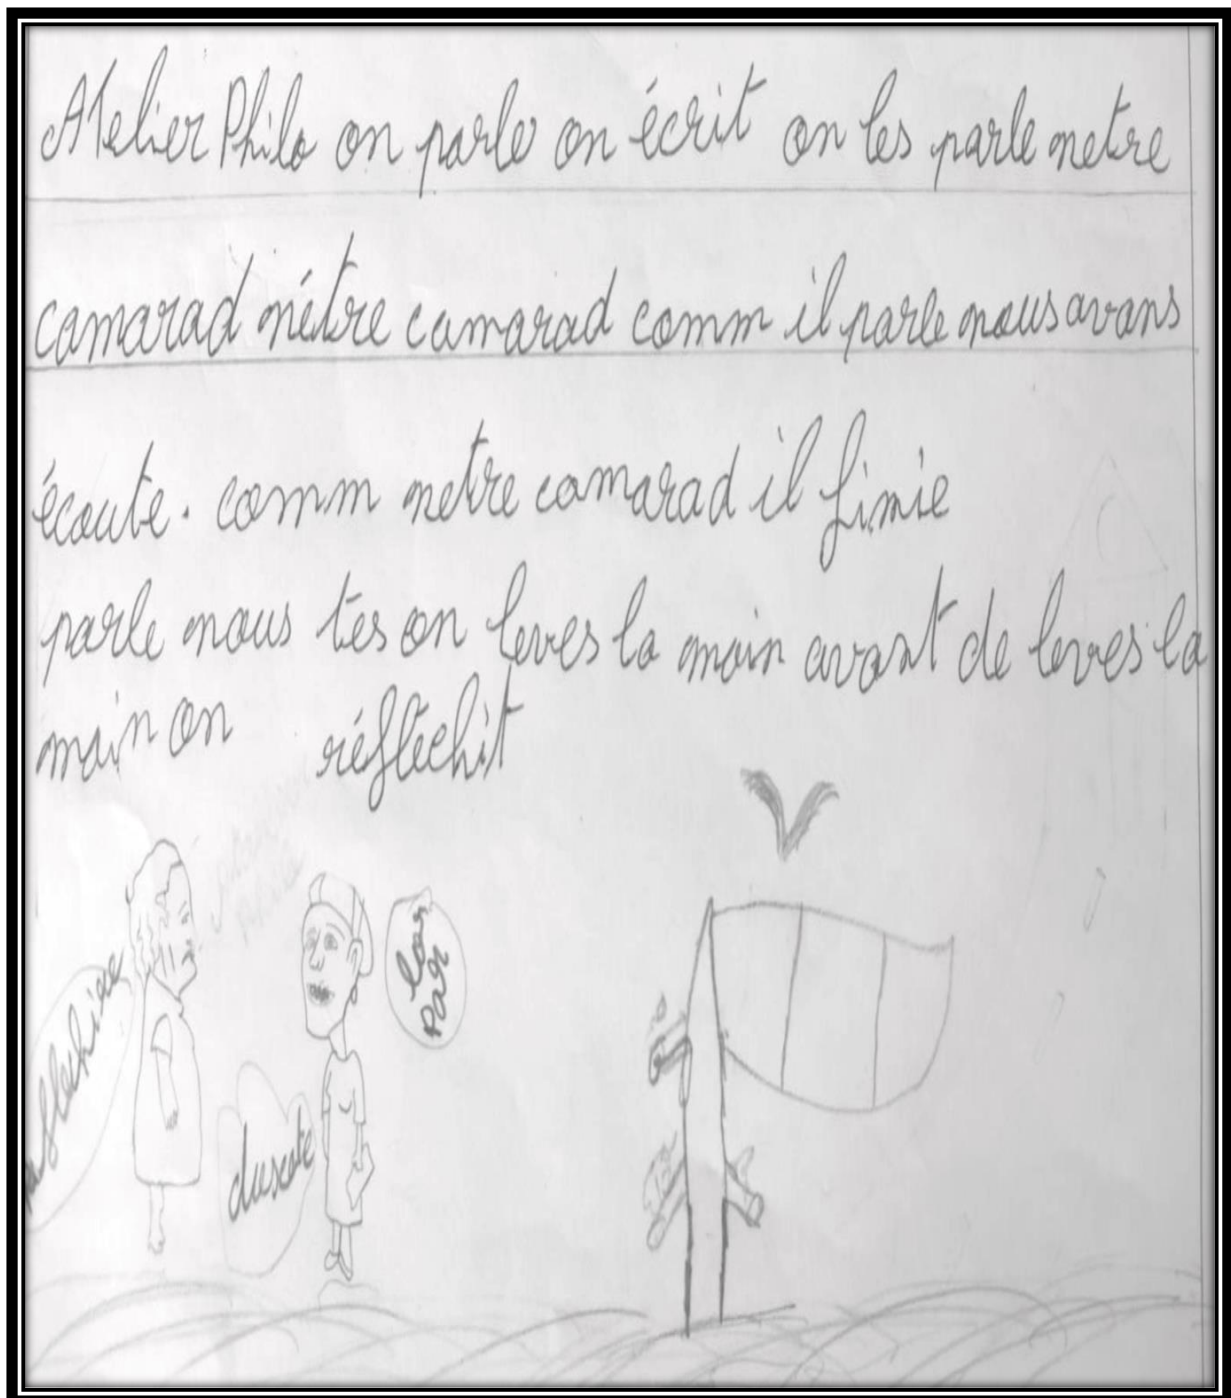 Atelier Philo on parle on écrit on les parle netre
camarad nétre camarad comm il parle nous avons
écoute. comm netre camarad il finie
parle nous tes on leves la main avant de leves la
main on réflechit